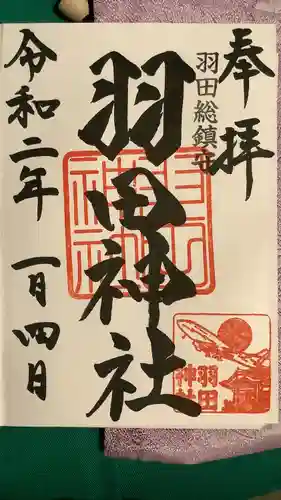 奉拝
羽田総鎮守
羽田神社
令和二年 一月四日
羽田神社
羽田
神社